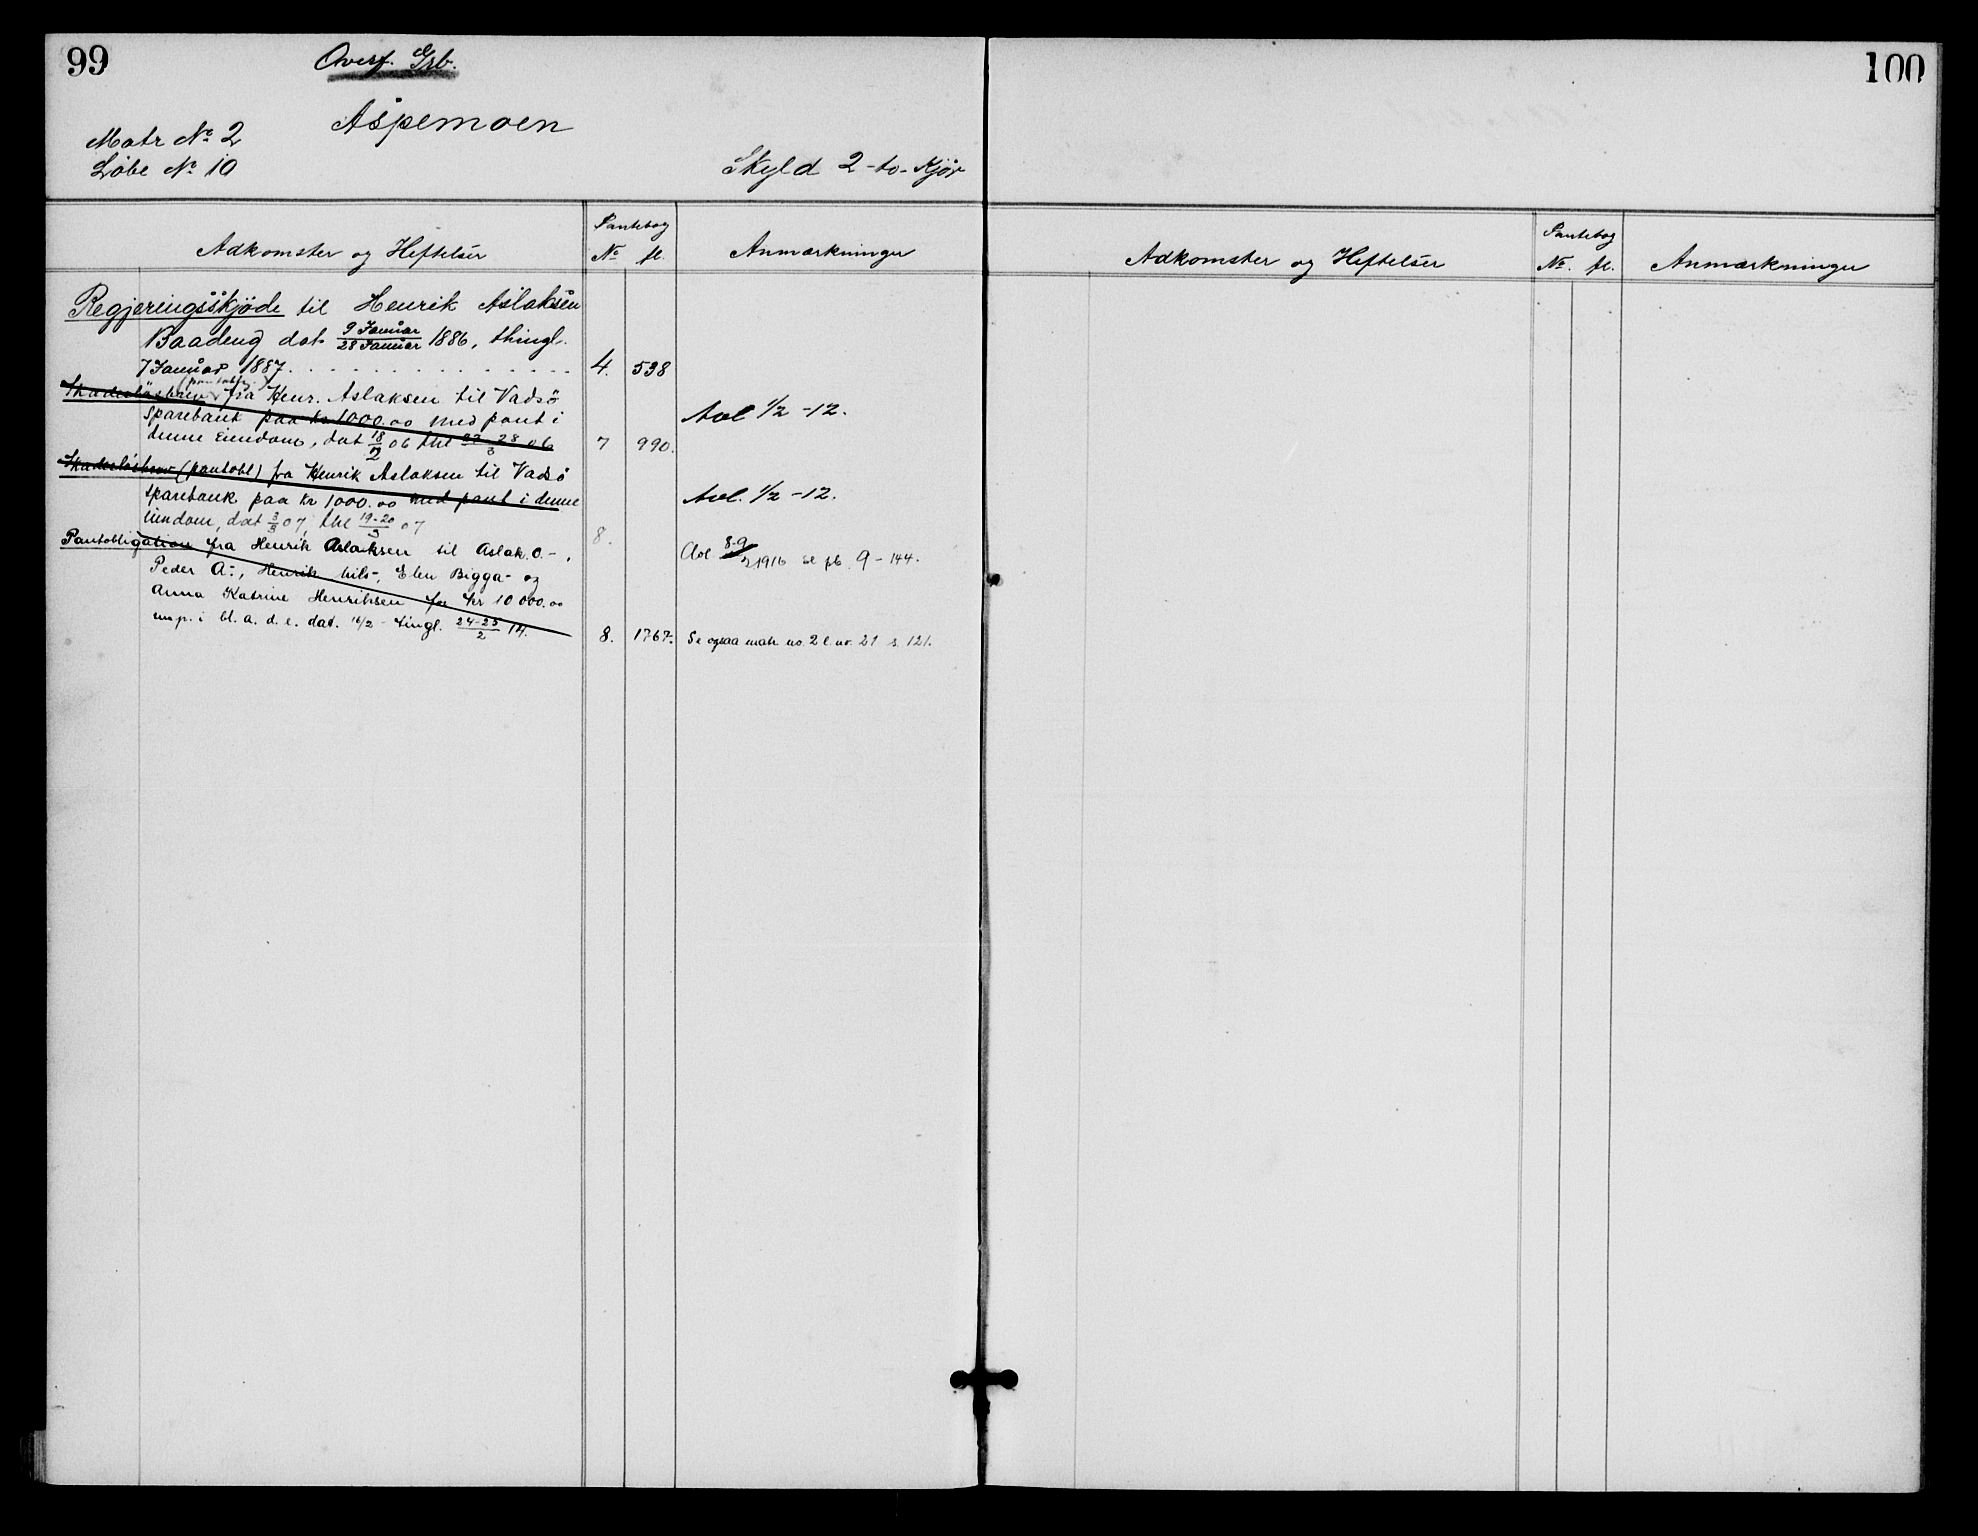 99
Overf. Grb.
Aspemoen
Matr No 2
Löbe No 10
Skyld 2 - to - Kjør
Adkomster og Heftelser
Pantebog
No fl.
Anmærkninger
Regjeringsskjöde til Henrik Aslaksen
Baadeng dat 9 Januar/28 Januar 1886, thingl.
7 Januar 1887. 4. 538
Skadeslösbrev (pantobl.) fra Henr. Aslaksen til Vadsö
Sparebank paa kr 1000.00 med pant i Avl 1/2 -12.
denne Eiendom, dat 18/2 06 thl 27-28/3 06 7 990.
Skadeslösbrev (pantobl) fra Henrik Aslaksen til Vadsö
Sparebank paa kr 1000.00 med pant i denne Avl. 1/2 -12.
Eiendom, dat 3/3 07, thl 19-20/3 07 8.
Pantobligation fra Henrik Aslaksen til Aslak O.-, Avl 8-9/2 1916 se pb. 9 - 144.
Peder A-, Henrik Nils-, Elen Bigga- og
Anna Katrine Henriksen for kr 10 000.00
m p. i bl. a. d. e. dat. 16/2 - tingl. 24-25/2 14. 8. 1767. Se ogsaa matr. no. 2 l. nr. 21 s. 121.
100
Adkomster og Heftelser
Pantebog
No. fl.
Anmærkninger